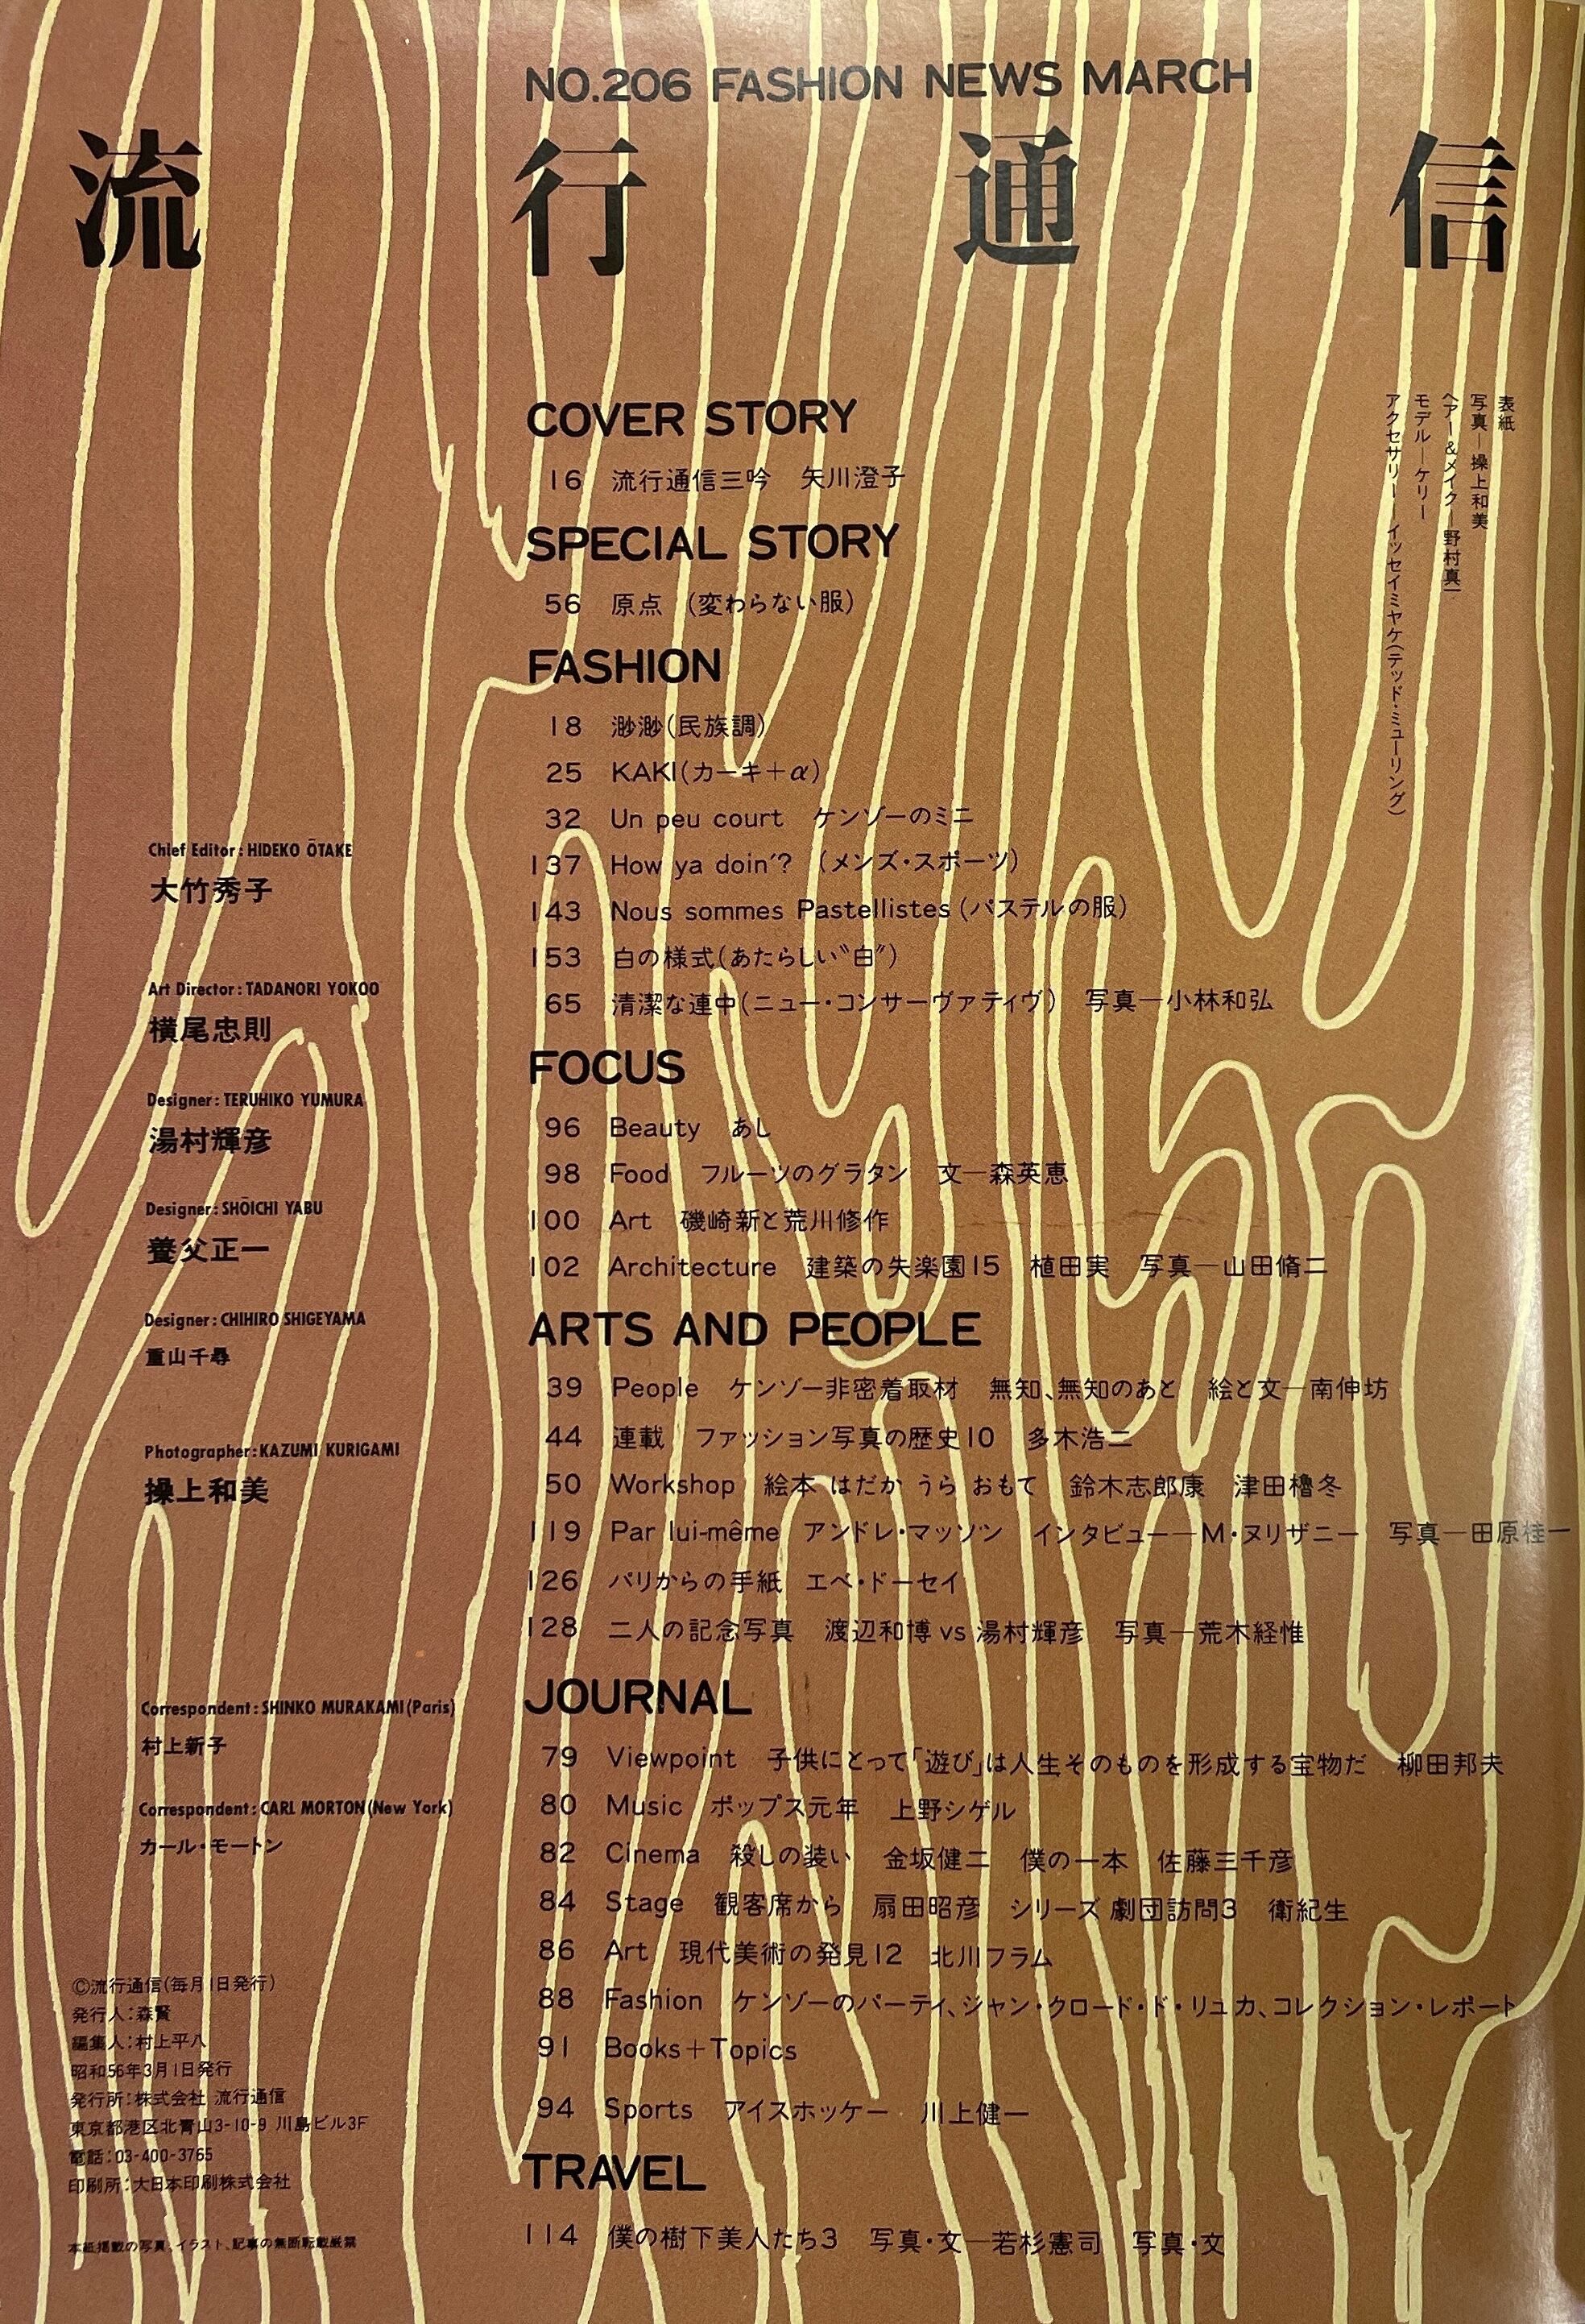 NO.206 FASHION NEWS MARCH
流行通信
表紙
写真—操上和美
ヘアー&メイク—野村真一
モデル—ケリー
アクセサリー—イッセイミヤケ(テッド・ミューリング)
COVER STORY
16 流行通信三吟 矢川澄子
SPECIAL STORY
56 原点 (変わらない服)
FASHION
18 渺渺(民族調)
25 KAKI(カーキ+α)
32 Un peu court ケンゾーのミニ
137 How ya doin'? (メンズ・スポーツ)
143 Nous sommes Pastellistes (パステルの服)
153 白の様式(あたらしい〝白〞)
65 清潔な連中(ニュー・コンサーヴァティヴ) 写真—小林和弘
FOCUS
96 Beauty あし
98 Food フルーツのグラタン 文—森英恵
100 Art 磯崎新と荒川修作
102 Architecture 建築の失楽園15 植田実 写真—山田脩二
ARTS AND PEOPLE
39 People ケンゾー非密着取材 無知、無知のあと 絵と文—南伸坊
44 連載 ファッション写真の歴史10 多木浩二
50 Workshop 絵本 はだか うら おもて 鈴木志郎康 津田櫓冬
119 Par lui-même アンドレ・マッソン インタビュー—M・ヌリザニー 写真—田原桂一
126 パリからの手紙 エベ・ドーセイ
128 二人の記念写真 渡辺和博 vs 湯村輝彦 写真—荒木経惟
JOURNAL
79 Viewpoint 子供にとって「遊び」は人生そのものを形成する宝物だ 柳田邦夫
80 Music ポップス元年 上野シゲル
82 Cinema 殺しの装い 金坂健二 僕の一本 佐藤三千彦
84 Stage 観客席から 扇田昭彦 シリーズ 劇団訪問3 衛紀生
86 Art 現代美術の発見12 北川フラム
88 Fashion ケンゾーのパーティ、ジャン・クロード・ド・リュカ、コレクション・レポート
91 Books+Topics
94 Sports アイスホッケー 川上健一
TRAVEL
114 僕の樹下美人たち3 写真・文—若杉憲司 写真・文
Chief Editor: HIDEKO ŌTAKE
大竹秀子
Art Director: TADANORI YOKOO
横尾忠則
Designer: TERUHIKO YUMURA
湯村輝彦
Designer: SHŌICHI YABU
養父正一
Designer: CHIHIRO SHIGEYAMA
重山千尋
Photographer: KAZUMI KURIGAMI
操上和美
Correspondent: SHINKO MURAKAMI (Paris)
村上新子
Correspondent: CARL MORTON (New York)
カール・モートン
©流行通信(毎月1日発行)
発行人:森賢
編集人:村上平八
昭和56年3月1日発行
発行所:株式会社 流行通信
東京都港区北青山3-10-9 川島ビル3F
電話:03-400-3765
印刷所:大日本印刷株式会社
本紙掲載の写真、イラスト、記事の無断転載厳禁